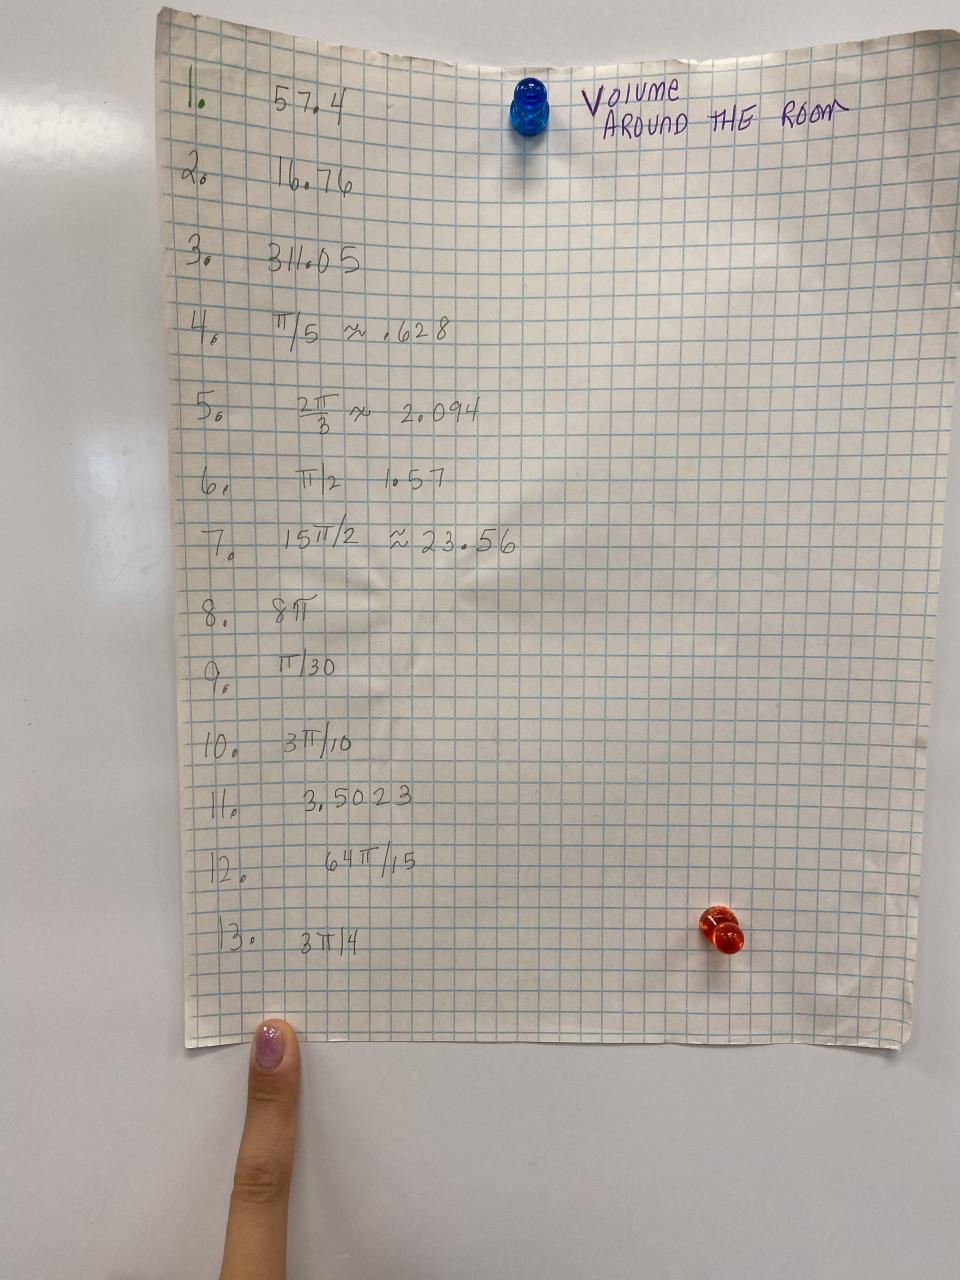 Volume
AROUND THE ROOM
1. 57.4
2. 16.76
3. 311.05
4. π/5 ≈ .628
5. 2π/3 ≈ 2.094
6. π/2 1.57
7. 15π/2 ≈ 23.56
8. 8π
9. π/30
10. 3π/10
11. 3.5023
12. 64π/15
13. 3π/4